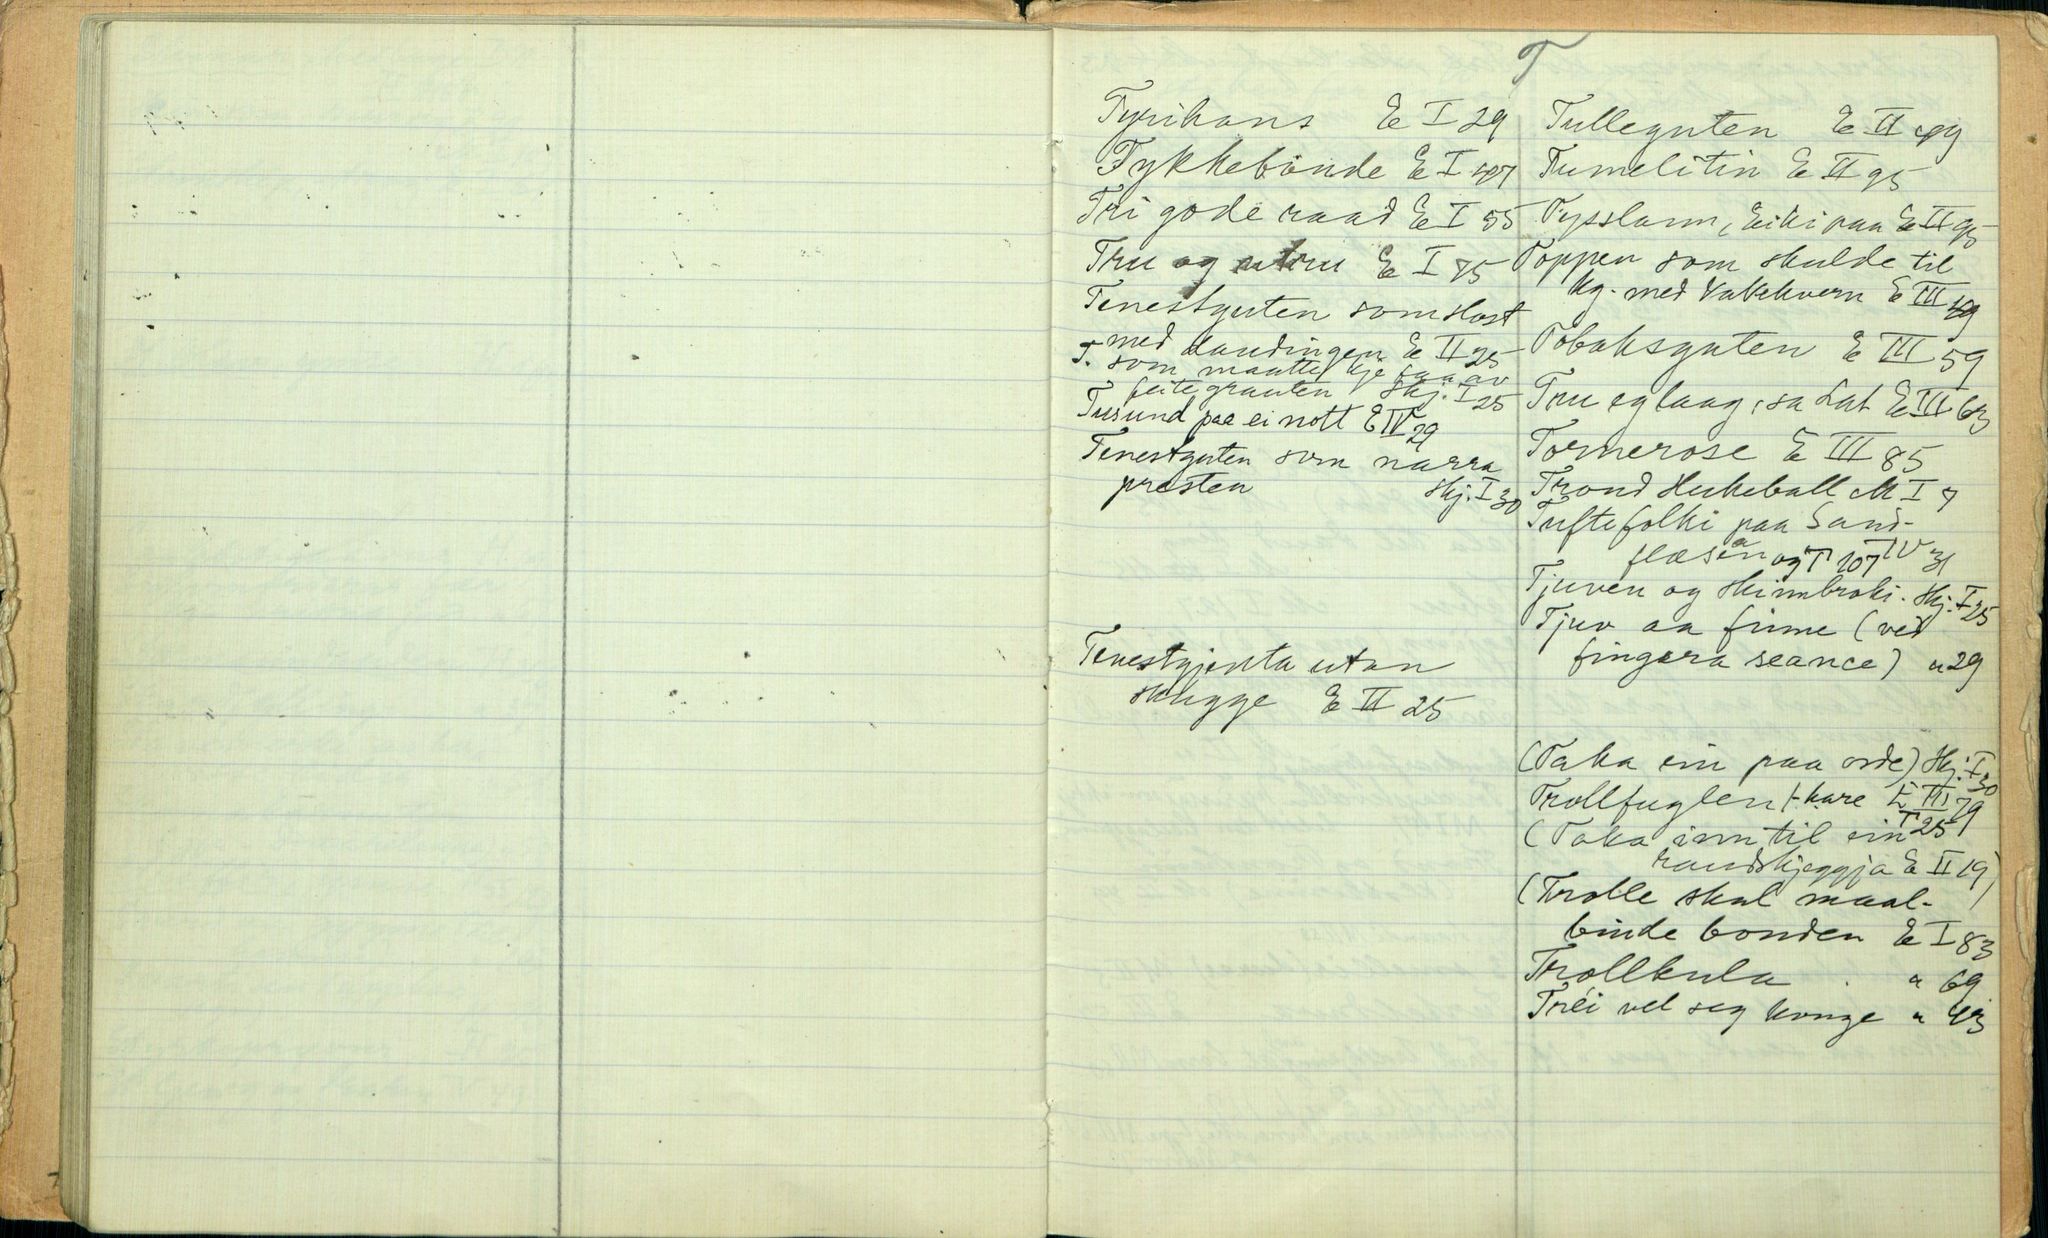 T
Tyrihans E I 29
Tykkebånde E I 107
Tri gode raad E I 55
Tru og utru E I 75
Tenestguten som slost
med Landingen E II 25
T. som maatte kje faa av
feite grauten Skj. I 25
Tusund paa ei nott E IV 29
Tenestguten som narra
presten Skj. I 30
Tenestgjenta utan
skugge E II 25
Tulleguten E II 49
Tumelitin E II 95
Tysslarm, Eiki paa E II 95
Toppen som skulde til
kg. med Vakekvern E III 19
Tobaksguten E III 59
Tru eg laag, sa Lat E III 63
Tornerose E III 85
Trond Hukeball M I 7
Tuftefolki paa Sand-
flæsen og T 107 IV 31
Tjuven og skinnbroki. Skj. I 25
Tjuv aa finne (ved
fingera seance) " 29
(Taka ein paa orde) Skj. I 30
Trollfuglen t-hare E III 79
I 25
(Taka inn til ein
raudskjeggja E II 19)
(Trolle skal maal-
binde bonden E I 83
Trollkula " 69
Trei vel seg konge " 43